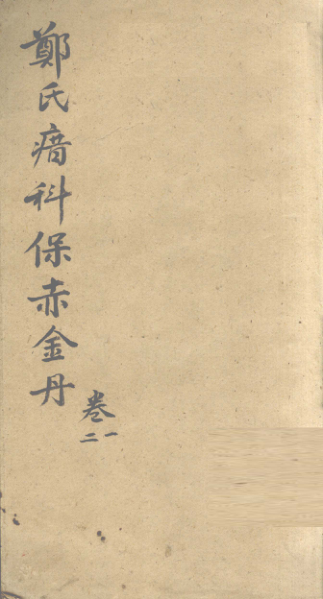 鄭氏瘄科保赤金丹
卷一二